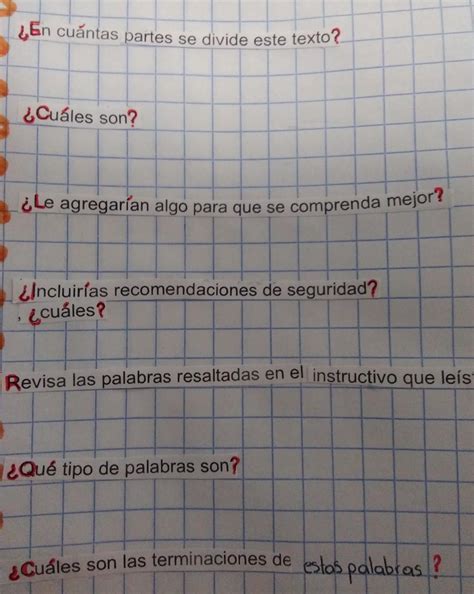 ¿En cuántas partes se divide este texto?
¿Cuáles son?
¿Le agregarían algo para que se comprenda mejor?
¿Incluirías recomendaciones de seguridad?
, ¿cuáles?
Revisa las palabras resaltadas en el instructivo que leís
¿Qué tipo de palabras son?
¿Cuáles son las terminaciones de estas palabras?